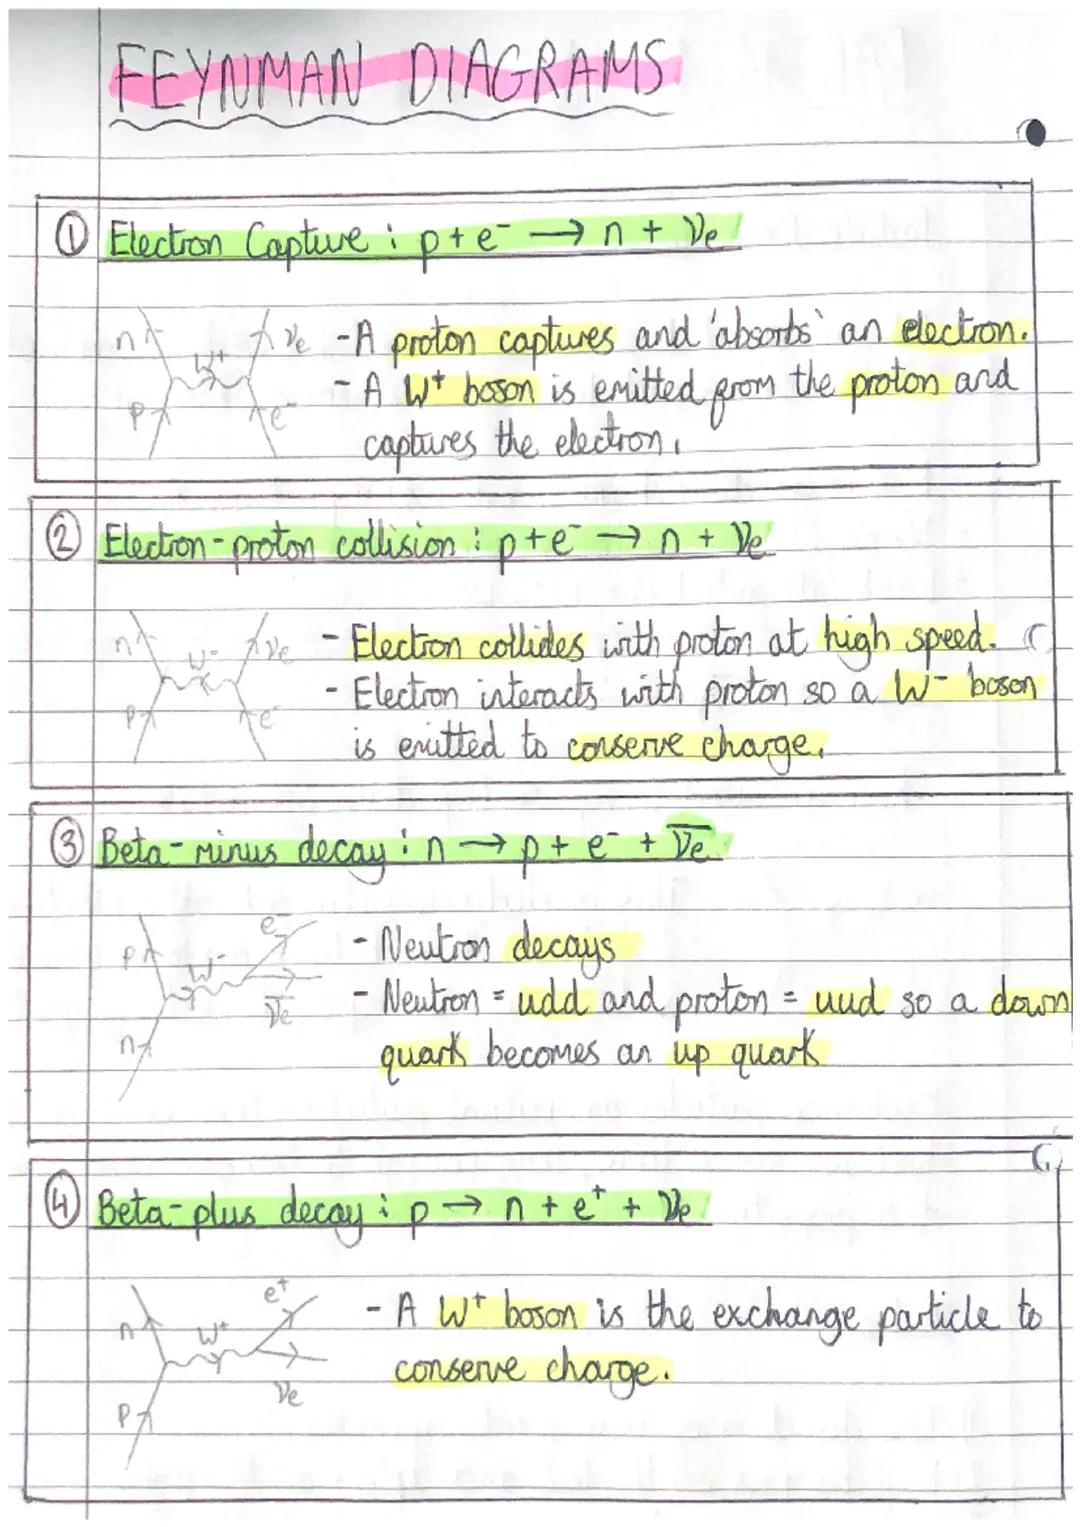 FEYNMAN DIAGRAMS
① Electron Capture : p + e⁻ → n + νe
n W⁺ νe
p e⁻
- A proton captures and 'absorbs' an electron.
- A W⁺ boson is emitted from the proton and
captures the electron.
② Electron-proton collision : p + e⁻ → n + νe
n W⁻ νe
p e⁻
- Electron collides with proton at high speed.
- Electron interacts with proton so a W⁻ boson
is emitted to conserve charge.
③ Beta-minus decay : n → p + e⁻ + ν̅e
e⁻
p W⁻
ν̅e
n
- Neutron decays
- Neutron = udd and proton = uud so a down
quark becomes an up quark
④ Beta-plus decay : p → n + e⁺ + νe
e⁺
n W⁺
νe
p
- A W⁺ boson is the exchange particle to
conserve charge.